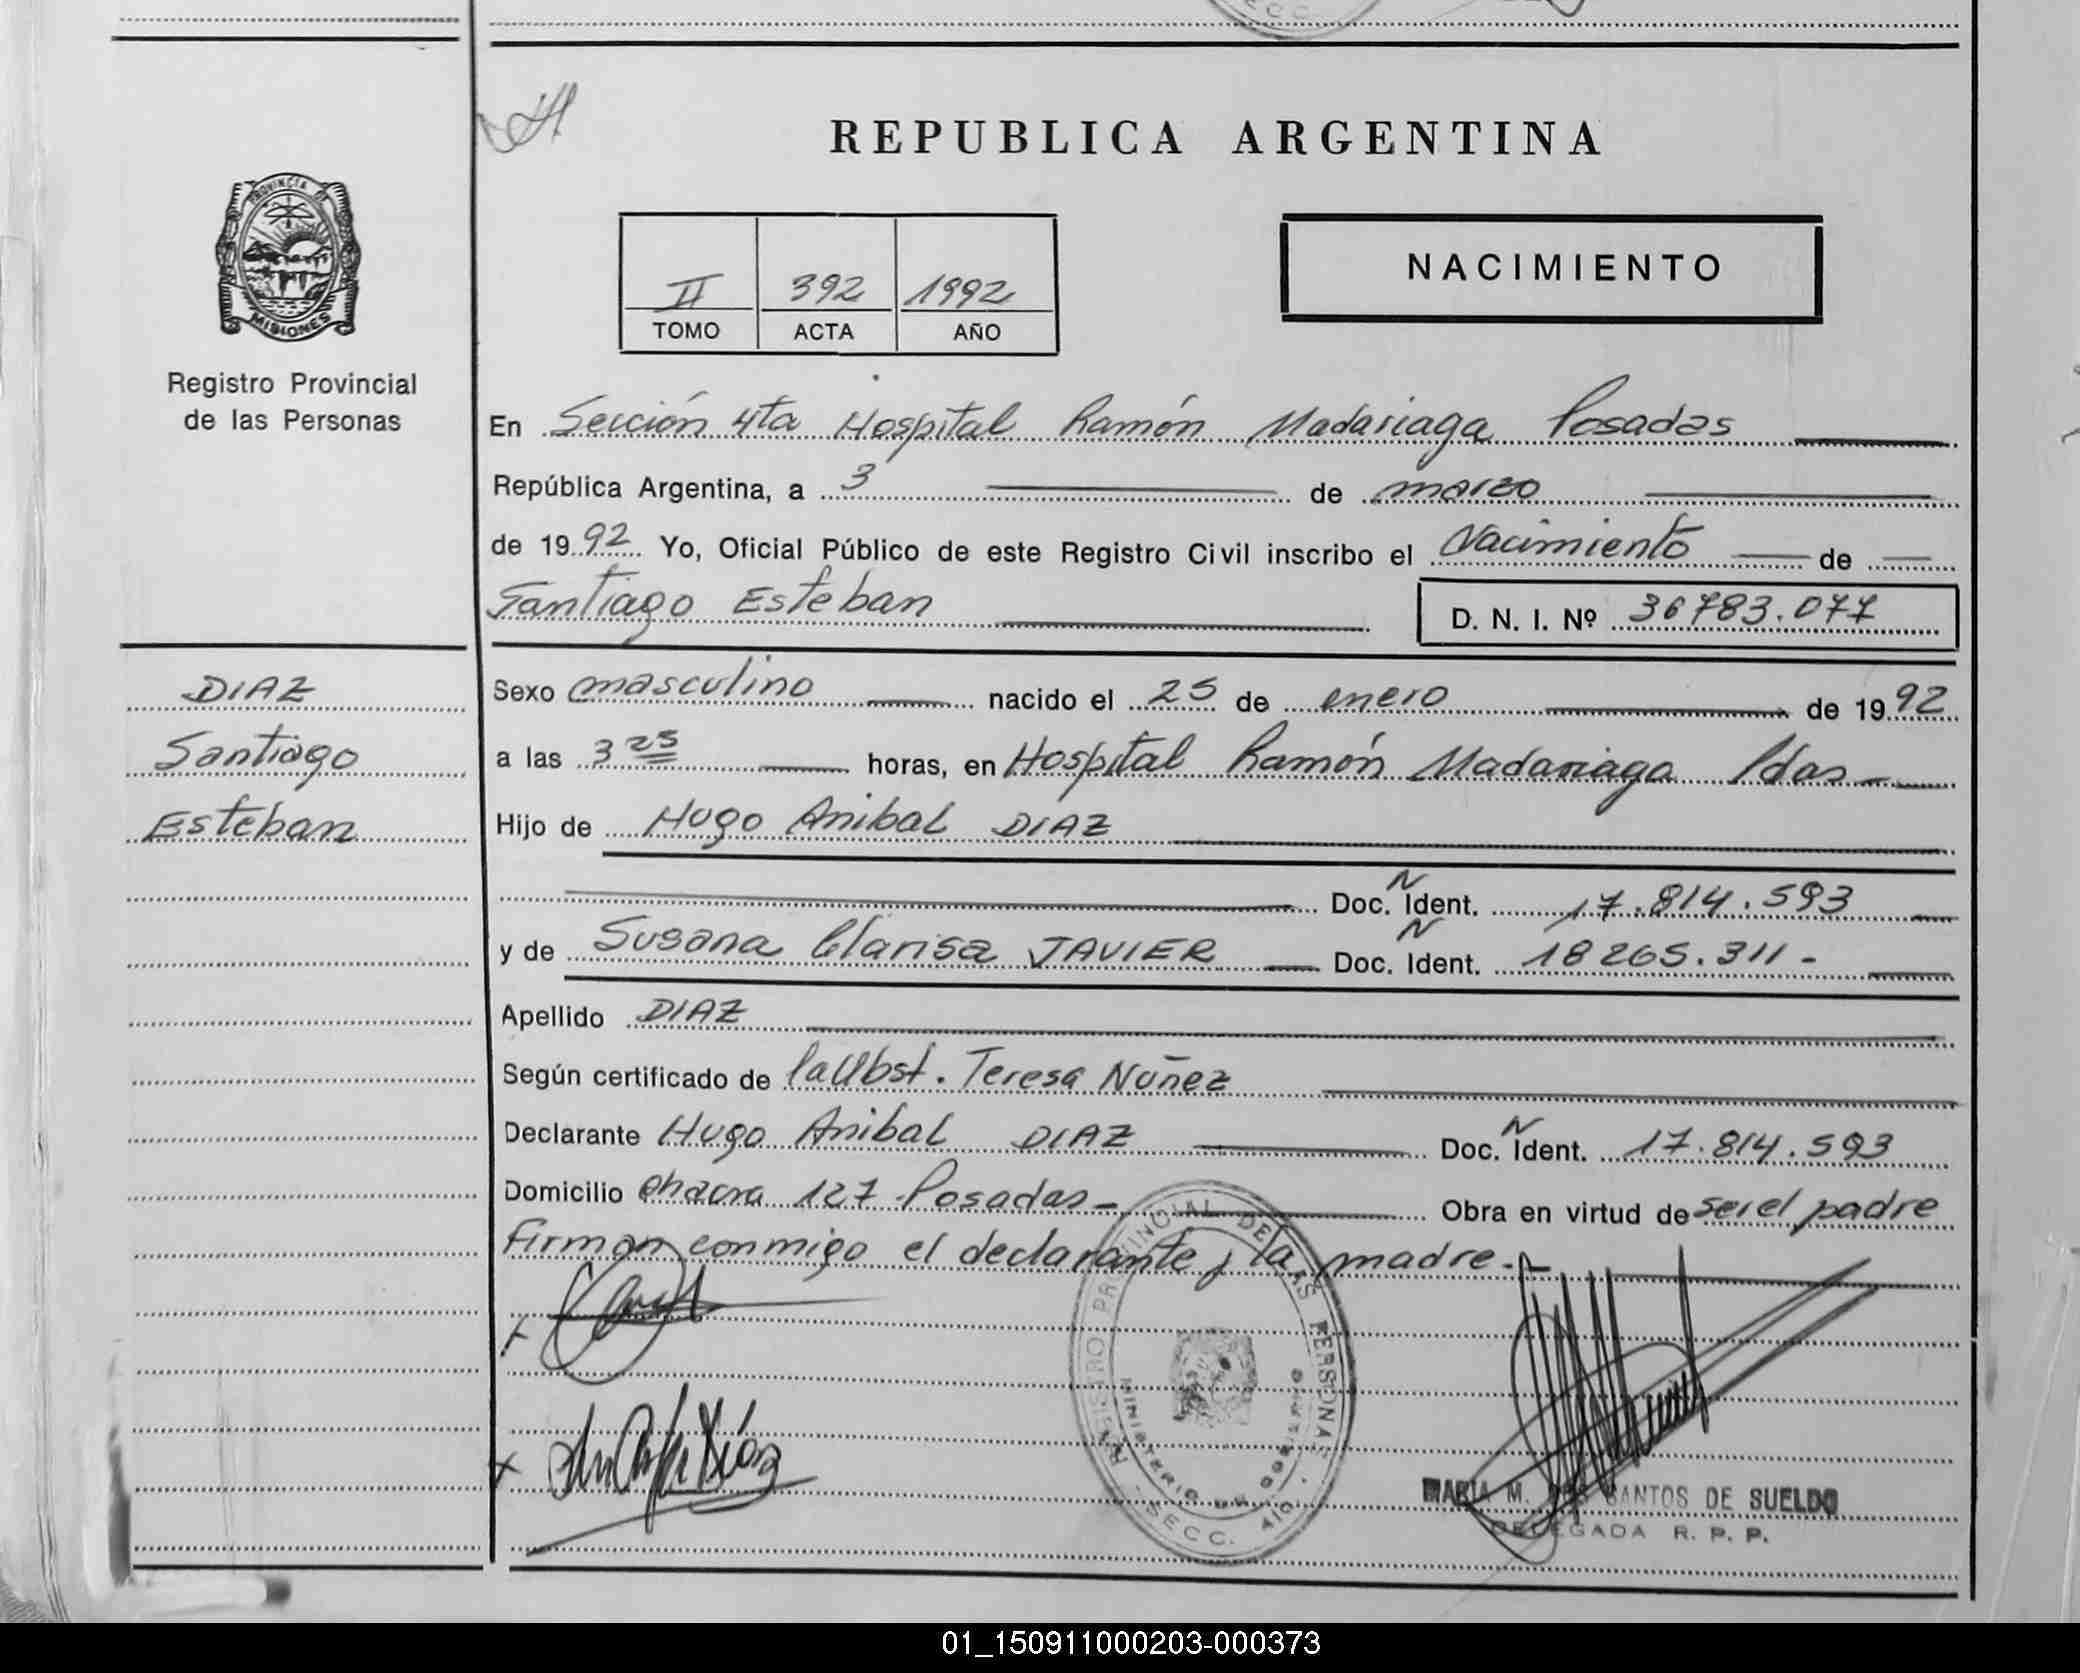 REPUBLICA ARGENTINA
PROVINCIA DE
MISIONES
Registro Provincial
de las Personas
II 392 1992
TOMO ACTA AÑO
NACIMIENTO
En Sección 4ta Hospital Ramón Madariaga Posadas
República Argentina, a 3 de marzo
de 1992 Yo, Oficial Público de este Registro Civil inscribo el Nacimiento de
Santiago Esteban D. N. I. Nº 36783.077
DIAZ
Santiago
Esteban
Sexo masculino nacido el 25 de enero de 1992
a las 3 25 horas, en Hospital Ramón Madariaga Pdas
Hijo de Hugo Anibal DIAZ
Doc. N Ident. 17.814.593
y de Susana Clarisa JAVIER Doc. N Ident. 18265.311-
Apellido DIAZ
Según certificado de la Obst. Teresa Núñez
Declarante Hugo Anibal DIAZ Doc. N Ident. 17.814.593
Domicilio chacra 127 Posadas Obra en virtud de ser el padre
Firman conmigo el declarante y la madre.-
REGISTRO PROVINCIAL DE LAS PERSONAS
MINISTERIO DE GOBIERNO
SECC. 4TO.
MARIA M. DOS SANTOS DE SUELDO
DELEGADA R. P. P.
01_150911000203-000373